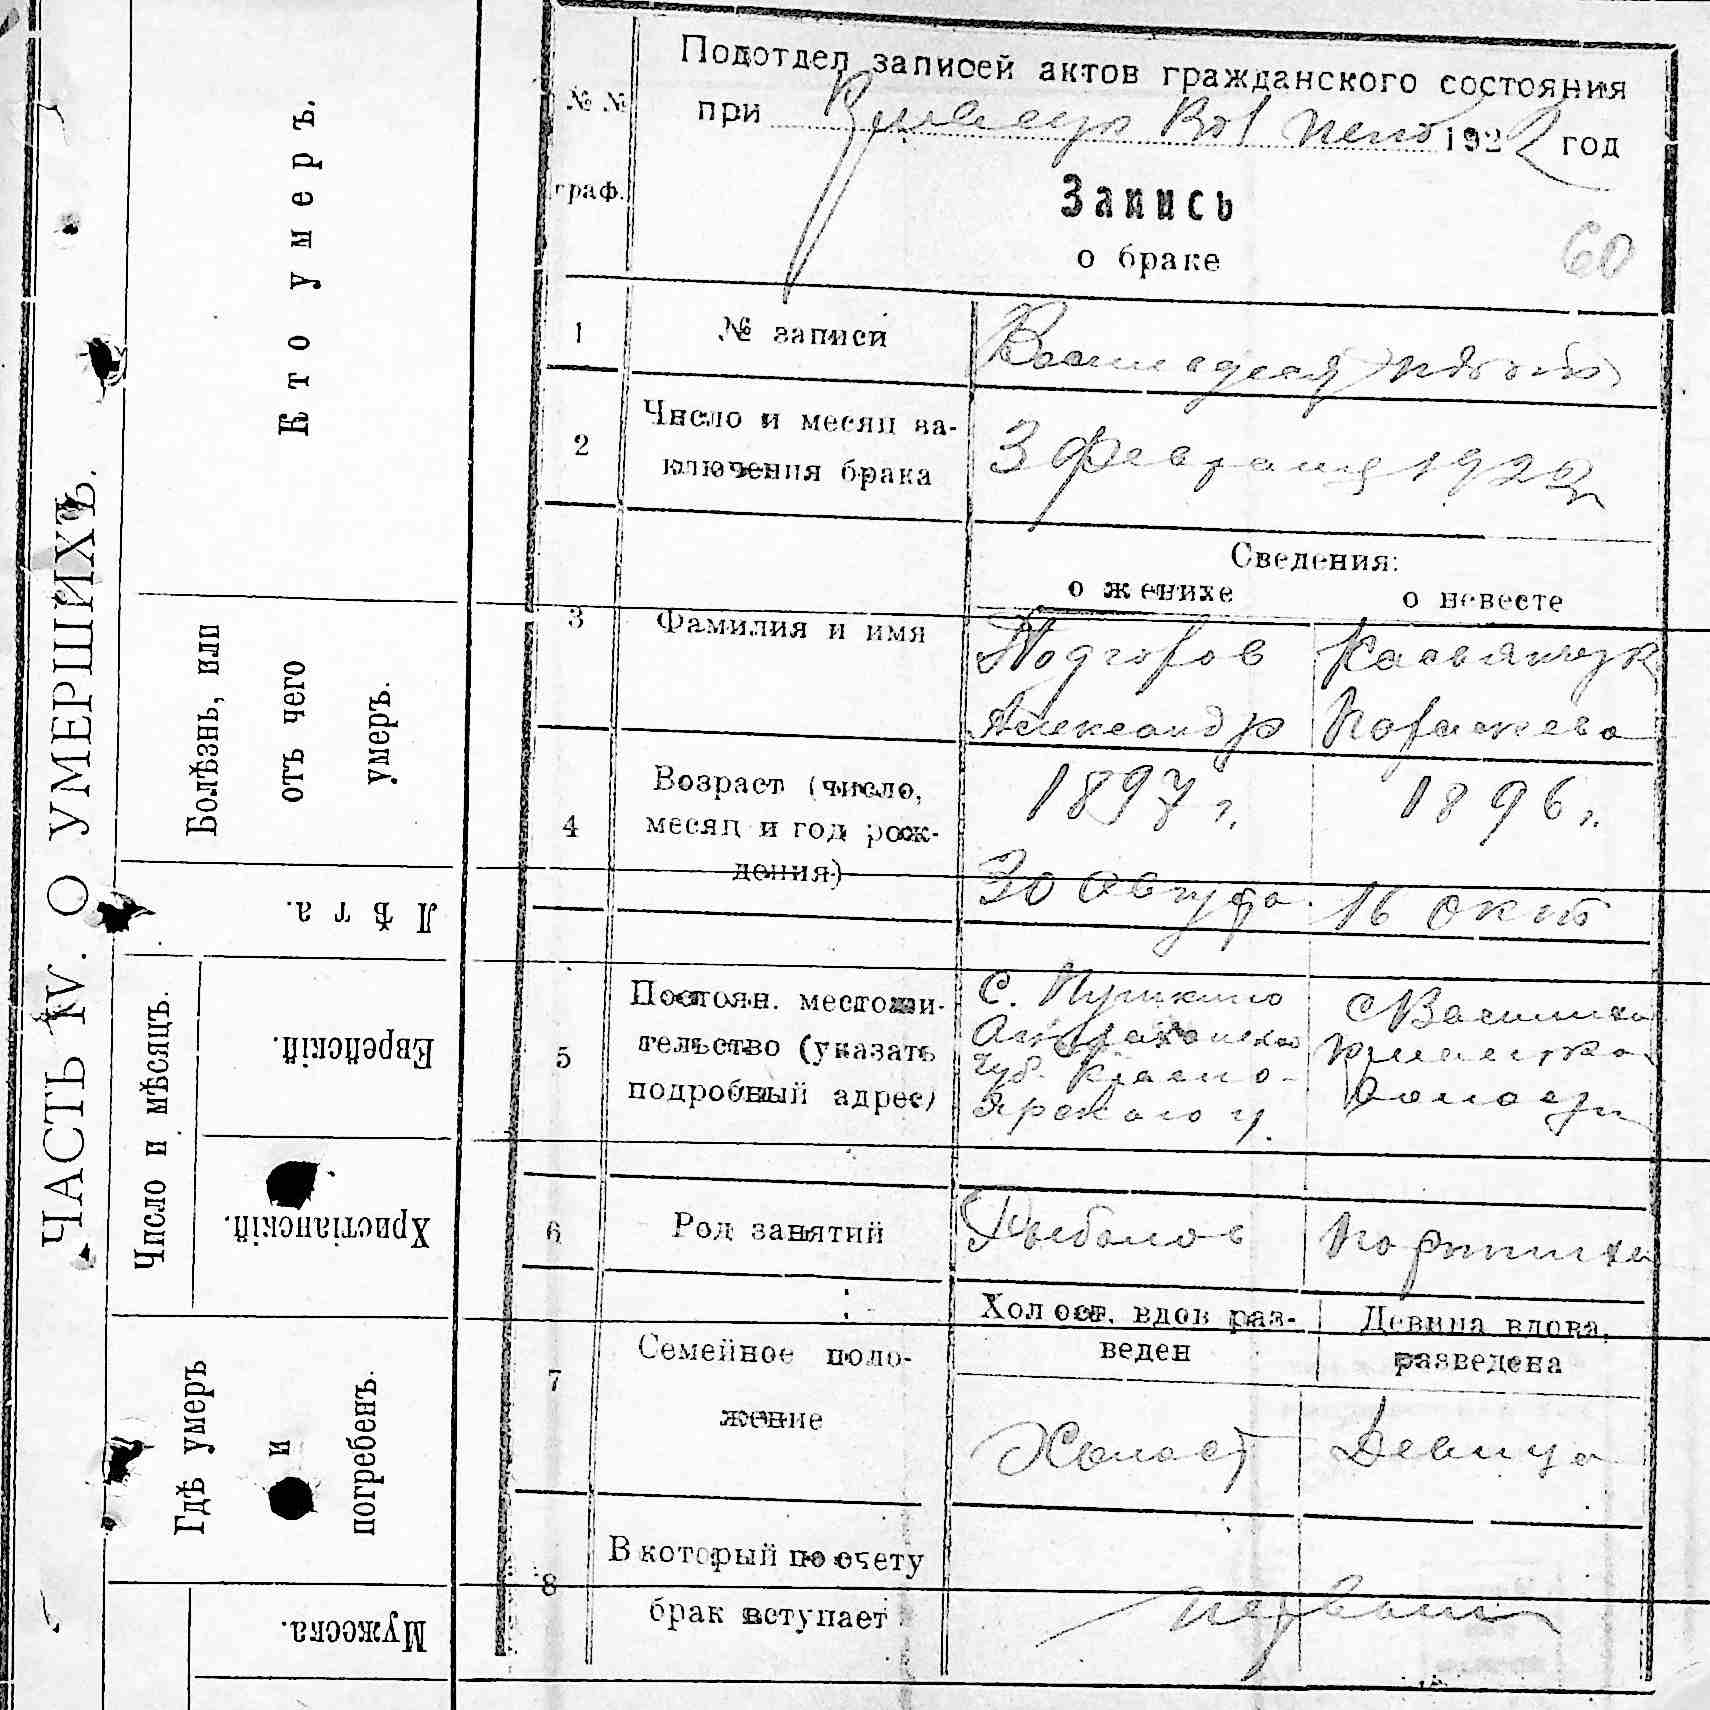 ЧАСТЬ IV. О УМЕРШИХЪ.
Кто умеръ.
Болѣзнь, или
отъ чего
умеръ.
Лѣта.
Число и мѣсяцъ.
Еврейскій.
Христіанскій.
Гдѣ умеръ
и
погребенъ.
Мужеска.
№ №
граф.
Подотдел записей актов гражданского состояния
при 192 2 год
Запись
о браке
60
1
№ записи
2
Число и месяц за-
ключения брака
3 февраля 1922
Сведения:
о женихе
о невесте
3
Фамилия и имя
Подгоров
Касьянчук
Александр
Параскева
4
Возраст (число,
месяц и год рож-
дения)
1897 г.
1896 г.
30 Августа
16 Окт
5
Постоян. местожи-
тельство (указать
подробный адрес)
С. Пушкино
Астраханской
Губ. Красно-
ярского у.
с
волости
6
Род занятий
Рыболов
Портниха
7
Семейное поло-
жение
Холост. вдов раз-
веден
Девица вдова,
разведена
Холост
Девица
8
В который по счету
брак вступает
первый